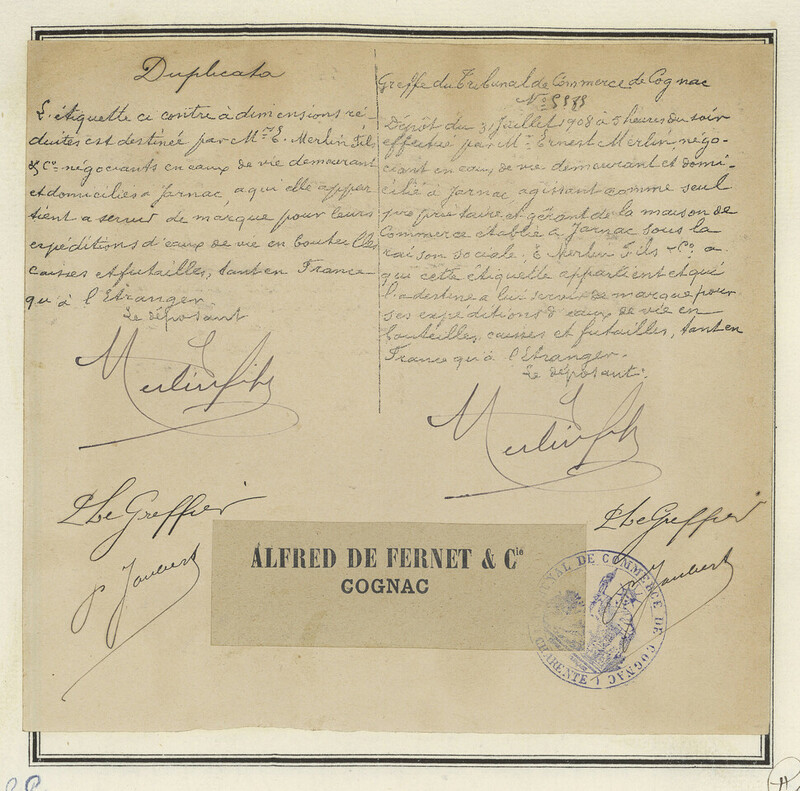 Duplicata
L'étiquette ci contre à dimensions ré-
duites est destinée par Mrs E. Merlin Fils
& Co négociants en eaux de vie demeurant
et domiciliés a Jarnac, a qui elle appar
tient a servir de marque pour leurs
expéditions d'eaux de vie en bouteilles
caisses et futailles, tant en France
qu'à l'Etranger
Le déposant
Merlin fils
P Le Greffier
p Joubert
Greffe du Tribunal de Commerce de Cognac
No
Dépôt du 31 Juillet 1908 à 5 heures du soir
effectué par Mr Ernest Merlin négo-
ciant en eaux de vie demeurant et domi-
cilié à Jarnac, agissant comme seul
propriétaire et gérant de la maison de
Commerce établie à Jarnac sous la
raison sociale, E Merlin Fils & Co a
qui cette étiquette appartient et qui
l'a destine a lui servir de marque pour
ses expéditions d'eaux de vie en
bouteilles, caisses et futailles, tant en
France qu'à l'Etranger.
Le déposant.
Merlin fils
P Le Greffier
Joubert
ALFRED DE FERNET & Cie
COGNAC
NAL DE COMMERCE DE COGNAC
CHARENTE